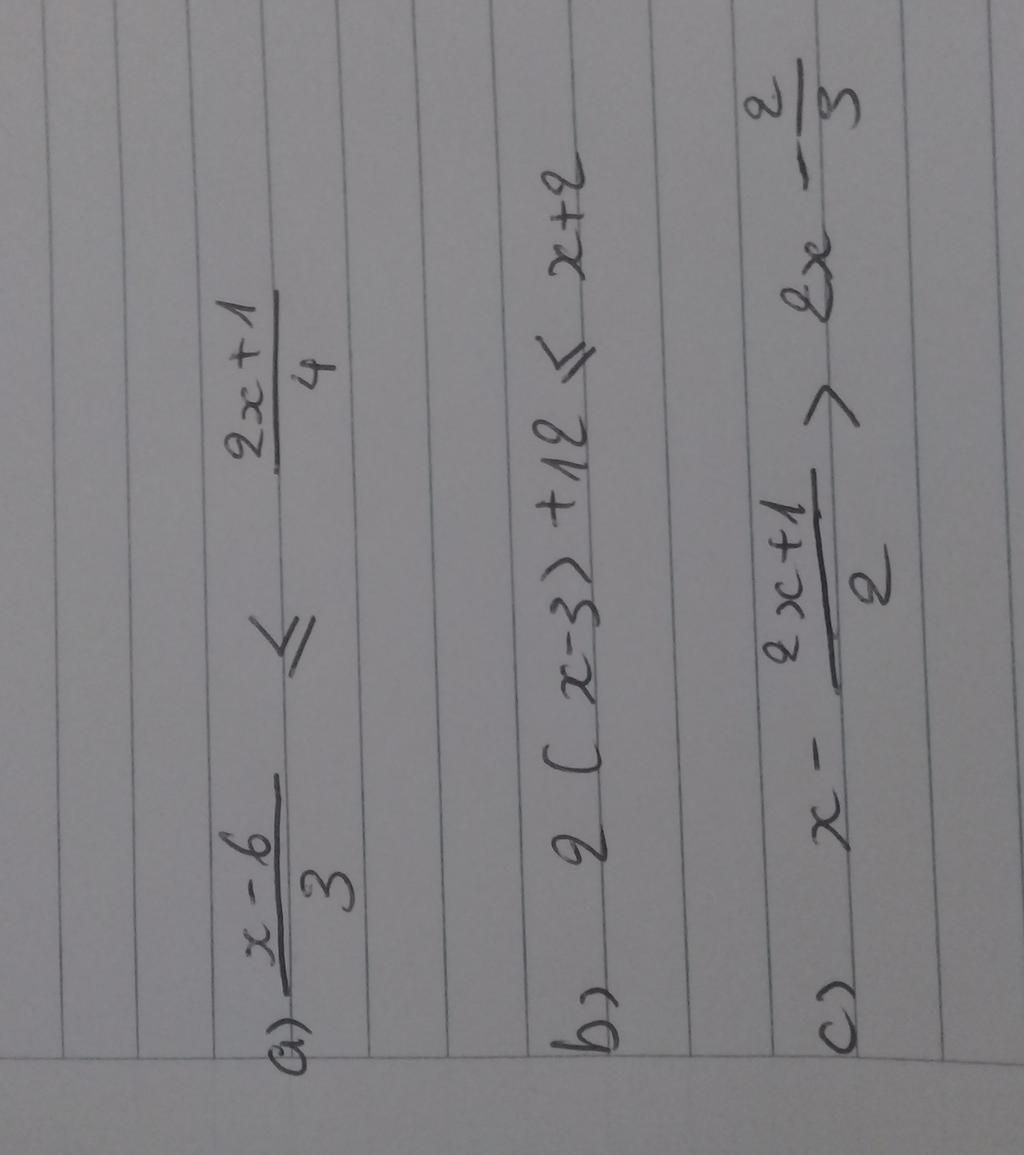 a) \frac{x-6}{3} ≤ \frac{2x+1}{4}
b) 2(x-3)+12 ≤ x+2
c) x - \frac{2x+1}{2} > 2x - \frac{2}{3}